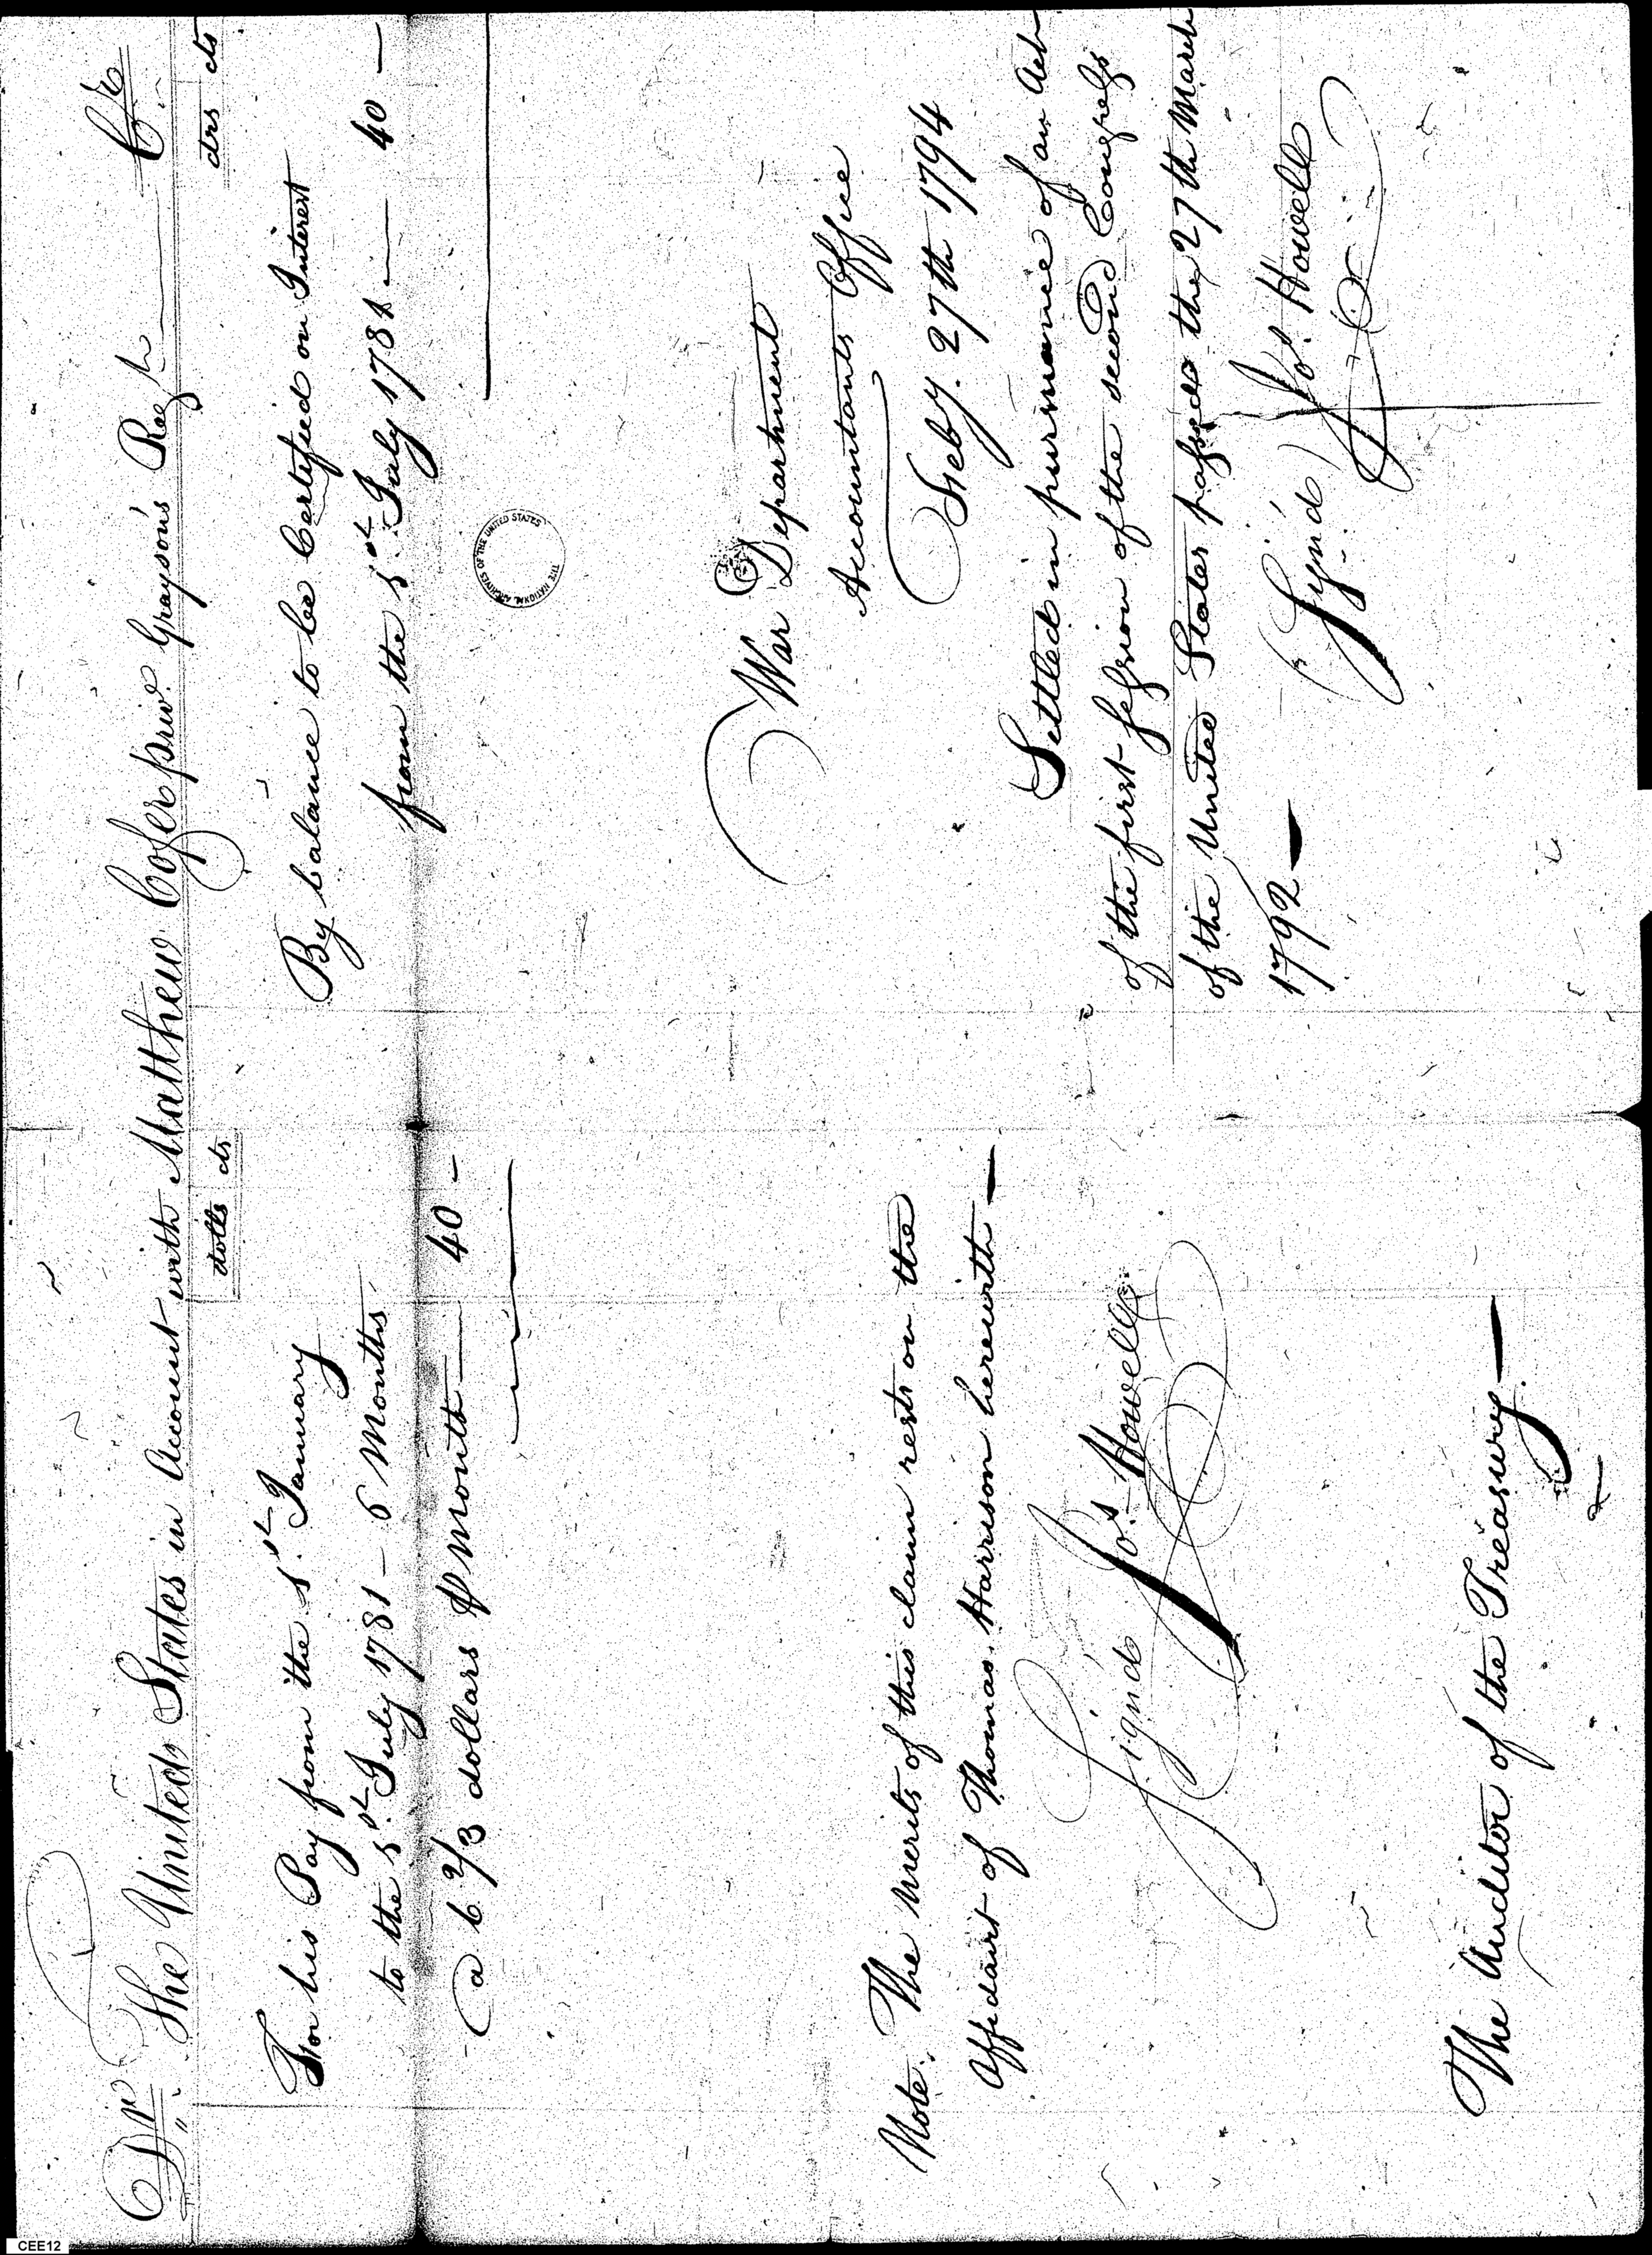 Dr. The United States in Account with Matthew Cofer priv. Grayson's Reg Cr.
dolls cts
For his Pay from the 1st January
to the 1st July 1781 - 6 Months
a 6 2/3 dollars P Month — 40 -
drs cts
By balance to be Certified on Interest
from the 1st July 1781 — 40 —
THE NATIONAL ARCHIVES OF THE UNITED STATES
War Department
Accountants Office
Feby. 27th 1794
Settled in pursuance of an Act
of the first session of the second Congress
of the United States passed the 27th March
1792 —
Sign'd Jos. Howell
Note. The merits of this claim rests on the
Affidavit of Thomas Harrison herewith —
Signd Jos. Howell
The Auditor of the Treasury —
CEE12